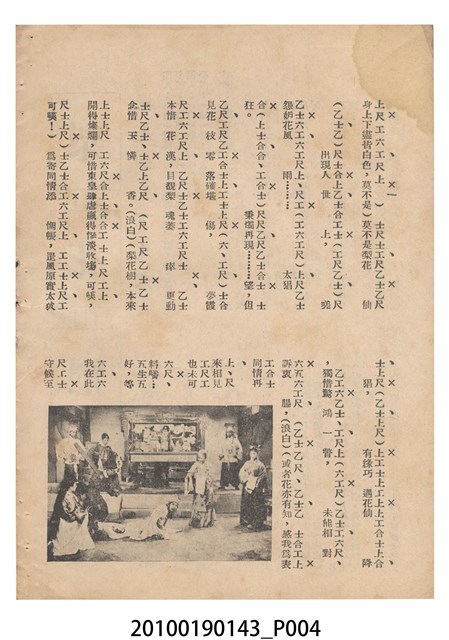 上尺工六工尺上　）尺士　乙士乙尺
身上下盡皆白色，莫不是）莫不是梨花　仙
（乙士乙）尺士合上乙士合工士（工尺乙士）尺
出現人　世　上，　嘆
乙士六工六工尺上、尺工（工六工尺）上尺乙士
怨妒花風　雨……　太猖
合（上士合合、工合士）尺尺乙尺乙士合士
狂。　秉燭再現……望，但
乙尺工尺工乙工合士上工士上士（六、工尺）士合
見花　枝　零　落確堪　傷，　夢霞
尺工六工六工尺上　尺工六工尺　乙士乙士
本惜　花　漢，目覩梨　魂萎　傢　更動
士尺乙士、乙士上乙尺　（尺工尺乙士乙士
念惜　玉　憐　香。（浪白）（梨花樹，本來
上士上尺　工六尺合上士合合工　工六工六上上士上
開得燦爛，可惜東皇肆虐贏得慘淡收塲，可嘆，
尺士上尺）士乙士合工六工尺上　工工士上尺工
可嘆！）　爲寄同情添　惆悵，罡風原實太炎
士上尺（乙士上尺）上工工士上上工合士上合
猖，　有緣巧　遇花仙　降
乙工六乙士、工尺上（六工尺）乙士工六工尺、
獨惜驚　鴻　一瞥，　未能相　對
六五六工尺（乙士乙尺、乙士乙　士合工上
訴衷　腸，（浪白）（或者花亦有知，感我爲表
工合士
同情再
上、尺
來相見
工尺工
也未可
六尺、
料嗎…
五生五
好，等
六工六
我在此
尺工士
守候至
20100190143_P004